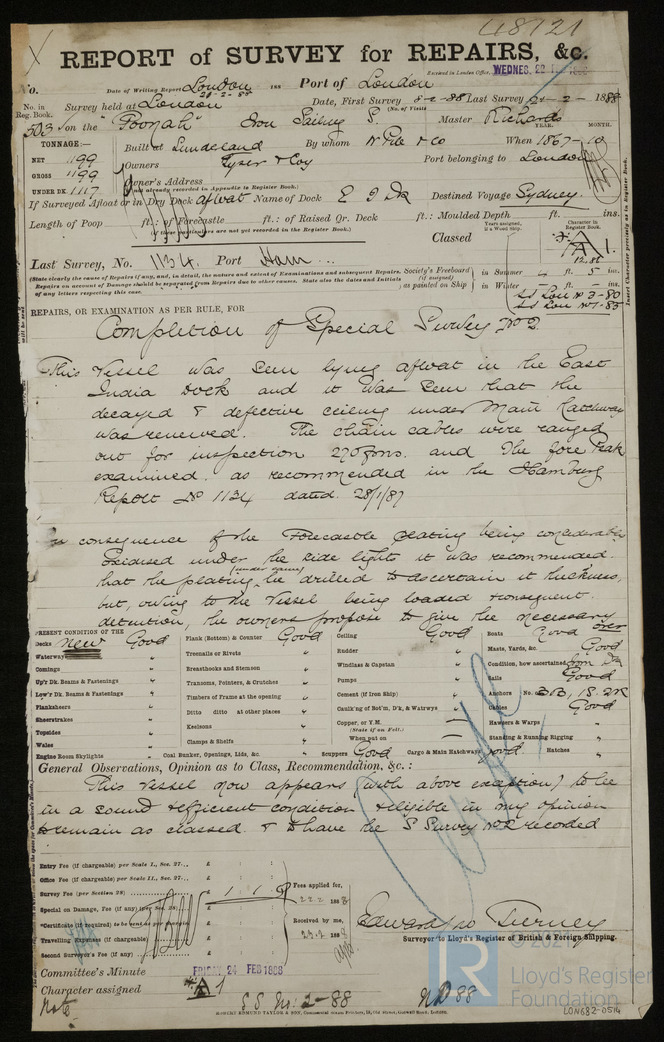 48121
REPORT of SURVEY for REPAIRS, &c.
Received in London Office, WEDNES. 22 FEB 1888
No.
Date of Writing Report London 21-2-88 188 Port of London
No. in Reg. Book.
Survey held at London Date, First Survey 8-2-88 Last Survey 21-2-1888
(No. of Visits)
503 on the "Poonah" Iron Sailing S. Master Richards
TONNAGE:—
YEAR. MONTH.
Built at Sunderland By whom W Pile & Co When 1867-10
NET 1199
GROSS 1199
UNDER DK. 1117
Owners Tyser & Coy Port belonging to London
Owner's Address
(if not already recorded in Appendix to Register Book.)
If Surveyed Afloat or in Dry Dock afloat Name of Dock E I Dk Destined Voyage Sydney
Length of Poop ft.: of Forecastle ft.: of Raised Qr. Deck ft.: Moulded Depth ft. ins.
(If these particulars are not yet recorded in the Register Book.)
Classed
Years assigned, if a Wood Ship.
Character in Register Book.
A1.
Last Survey, No. 1134. Port Ham...
(State clearly the cause of Repairs if any, and, in detail, the nature and extent of Examinations and subsequent Repairs.
Repairs on account of Damage should be separated from Repairs due to other causes. State also the dates and Initials
of any letters respecting this case.
Society's Freeboard (if assigned) as painted on Ship
in Summer 4 ft. 5 ins.
in Winter ft. ins.
SS Lon No 3-80
SS Lon No 1-85
Insert Character precisely as in Register Book.
REPAIRS, OR EXAMINATION AS PER RULE, FOR
Completion of Special Survey No 2.
This Vessel was seen lying afloat in the East
India Dock and it was seen that the
decayed & defective ceiling under Main Hatchway
was renewed. The chain cables were ranged
out for inspection 270 fms. and the fore Peak
examined. as recommended in the Hamburg
Report No 1134 dated 28/1/87
In consequence of the Forecastle plating being considerably
oxidised under the side lights it was recommended
that the plating (under same) be drilled to ascertain it thickness,
but, owing to the Vessel being loaded & consequent
detention, the owners propose to give the necessary
over
PRESENT CONDITION OF THE
Decks New Good
Waterways "
Comings "
Up'r Dk. Beams & Fastenings "
Low'r Dk. Beams & Fastenings "
Planksheers "
Sheerstrakes "
Topsides "
Wales "
Engine Room Skylights "
Plank (Bottom) & Counter Good
Treenails or Rivets "
Breasthooks and Stemson "
Transoms, Pointers, & Crutches "
Timbers of Frame at the opening "
Ditto ditto at other places "
Keelsons "
Clamps & Shelfs "
Coal Bunker, Openings, Lids, &c. "
Ceiling Good
Rudder "
Windlass & Capstan "
Pumps "
Cement (if Iron Ship) "
Caulk'ng of Bot'm, D'k, & Watrwys "
Copper, or Y.M. —
(State if on Felt.)
When put on —
Scuppers Good
Cargo & Main Hatchways Good
Boats Good
Masts, Yards, &c. Good
Condition, how ascertained from Dk
Sails Good
Anchors No. 3B, 1S. 2K
Cables Good
Hawsers & Warps "
Standing & Running Rigging "
Hatches "
General Observations, Opinion as to Class, Recommendation, &c.:
This Vessel now appears (with above exception) to be
in a sound & efficient condition & eligible in my opinion
to remain as classed & to have the S Survey No 2 recorded
Entry Fee (if chargeable) per Scale I., Sec. 27... £ : :
Office Fee (if chargeable) per Scale II., Sec. 27... £ : :
Survey Fee (per Section 28) £ 1 : 1 : 0
Special on Damage, Fee (if any) (per Sec. 28) £ : :
*Certificate (if required) to be sent as per margin £ : :
Travelling Expenses (if chargeable) £ : :
Second Surveyor's Fee (if any) £ : :
Fees applied for,
22.2 1888
Received by me,
1888
Edward W Tierney
Surveyor to Lloyd's Register of British & Foreign Shipping.
Committee's Minute FRIDAY 24 FEB 1888
Character assigned A1
Note S S No: 2-88 ND 88
ROBERT EDMUND TAYLOR & SON, Commercial Steam Printers, 19, Old Street, Goswell Road, London.
© 2021
Lloyd's Register
Foundation
LON682-0514